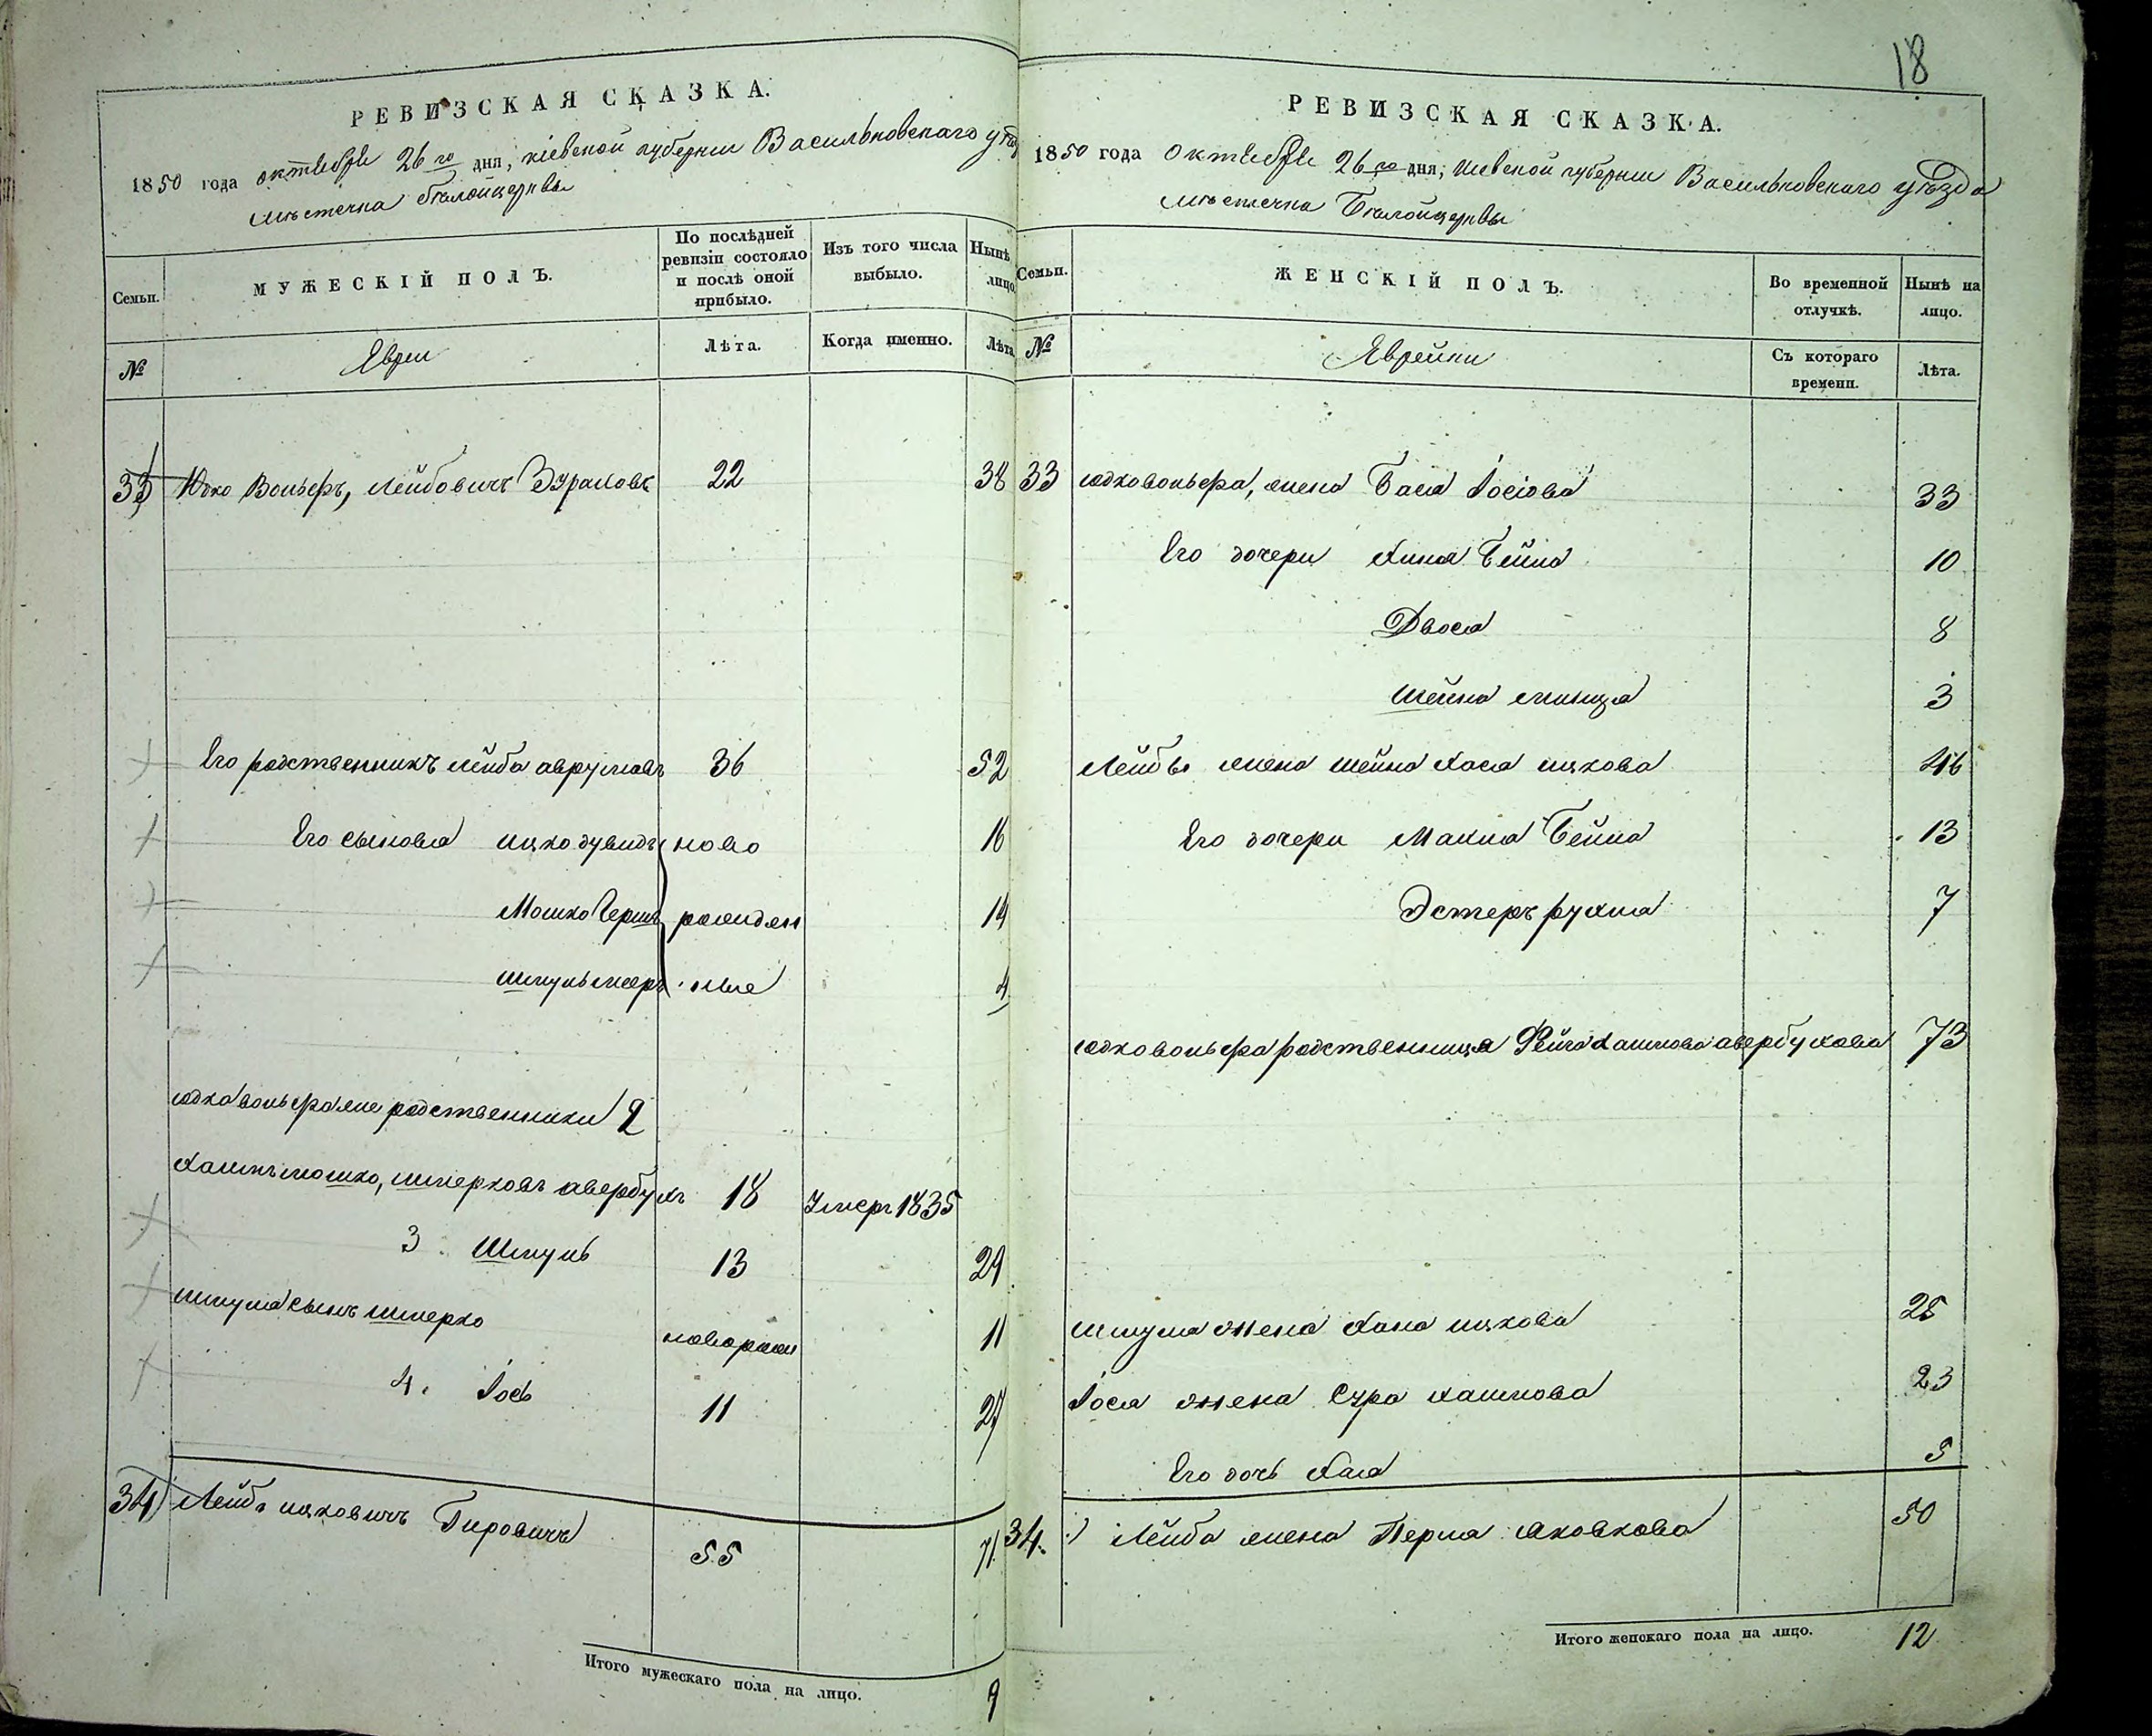 18
РЕВИЗСКАЯ СКАЗКА.
1850 года октября 26го дня, Кіевской губерніи Васильковскаго уѣзд
мѣстечка Бѣлойцеркви
Семьи.
МУЖЕСКІЙ ПОЛЪ.
По послѣдней ревизіи состояло и послѣ оной прибыло.
Изъ того числа выбыло.
Нынѣ лицо
№
Евреи
Лѣта.
Когда именно.
Лѣта
33 Юдко Вольфъ, Лейбовичъ 22 38
Его родственникъ Лейба аврумовъ 36 52
Его сыновья ицко дувидъ ново 16
Мошко Гершъ рожден 14
Шмуль меер ные 4
юдка вольфа же родственники 2
Хаимъ мошко, шмерковъ авербухъ 18 Умеръ 1835
3. Шмуль 13 29
шмуля сынъ шмерко новорожд 11
4. Іось 11 27
34 Лейба ицковичъ 55 71
Итого мужескаго пола на лицо. 9
РЕВИЗСКАЯ СКАЗКА.
1850 года октября 26го дня, Кіевской губерніи Васильковскаго уѣзда
мѣстечка Бѣлойцеркви
Семьи.
ЖЕНСКІЙ ПОЛЪ.
Во временной отлучкѣ.
Нынѣ на лицо.
№
Еврейки
Съ котораго времени.
Лѣта.
33 юдко вольфа, жена Бася Іосіова 33
Его дочери Хина Бейла 10
Двося 8
шейна 3
Лейбы жена шейна Хася ицкова 46
Его дочери Малка Бейла 13
Эстеръ рухля 7
юдко вольфа родственница Фейга Хаимова авербухова 73
шмуля жена Хана ицкова 25
Іося жена Сура хаимова 23
Его дочь Хая 5
34. Лейба жена Перля 50
Итого женскаго пола на лицо. 12